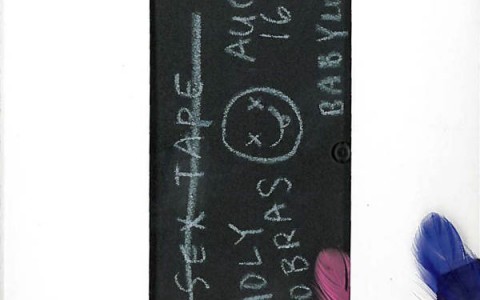 SEX TAPE
DLY
OBRAS
AUG
16
BABYL